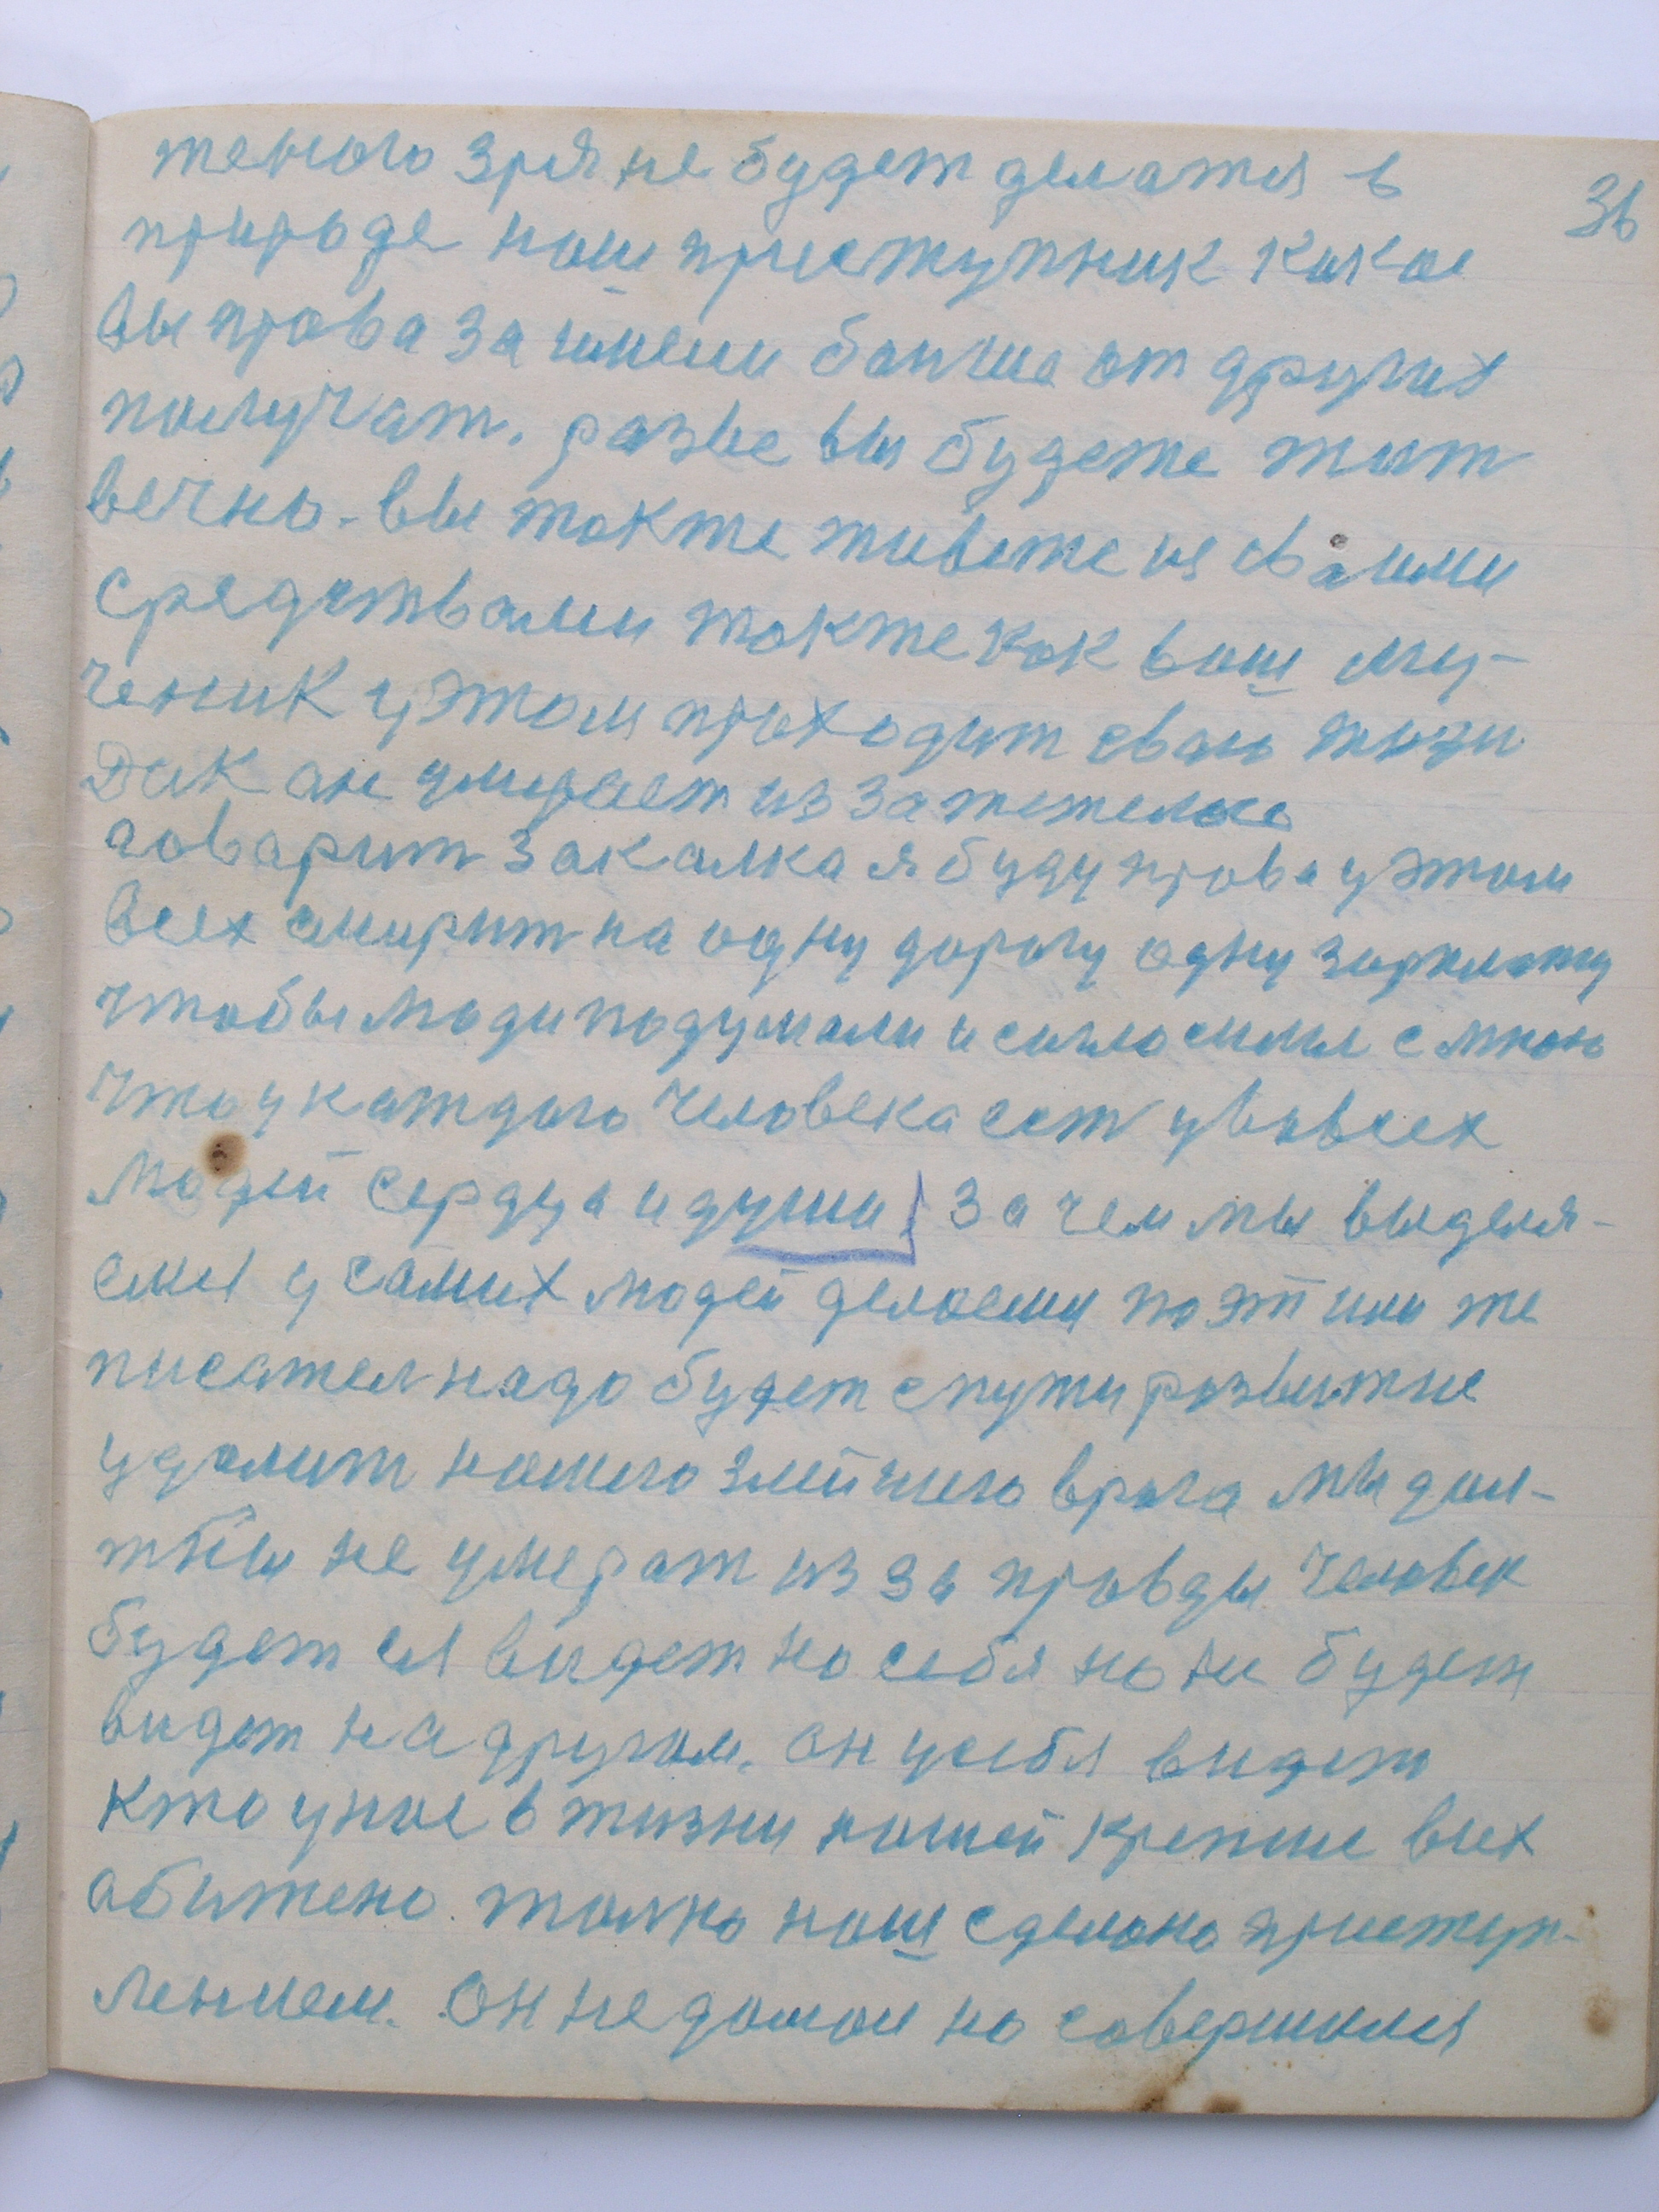 теного зря не будет делатся в
36
природе наш приступник какое
вы права за имели болше от других
получат. разве вы будете жит
вечно. вы также живете ие сваими
средствами также как ваш му-
ченик у этом праходит сваю жизн
Дак он умирает из за тежелаго
говарит закалка я буду права у этом
всех смирит на одну дорогу одну зарплату
чтобы люди подумали и согласилис с мною
что у каждого человека ест у во всех
людей сердца и души зачем мы выделя-
емы у самих людей делаемы поэт или же
писател надо будет с пути развитие
удалит нашего злейшего врага мы дол-
жны не умерат из за правды человек
будет ся видет на себя но не будет
видет на другом. он у себя видет
кто у нас в жизни нашей крепше всех
абижено. толко наш сделано приступ-
лением. Он не домой но совершился